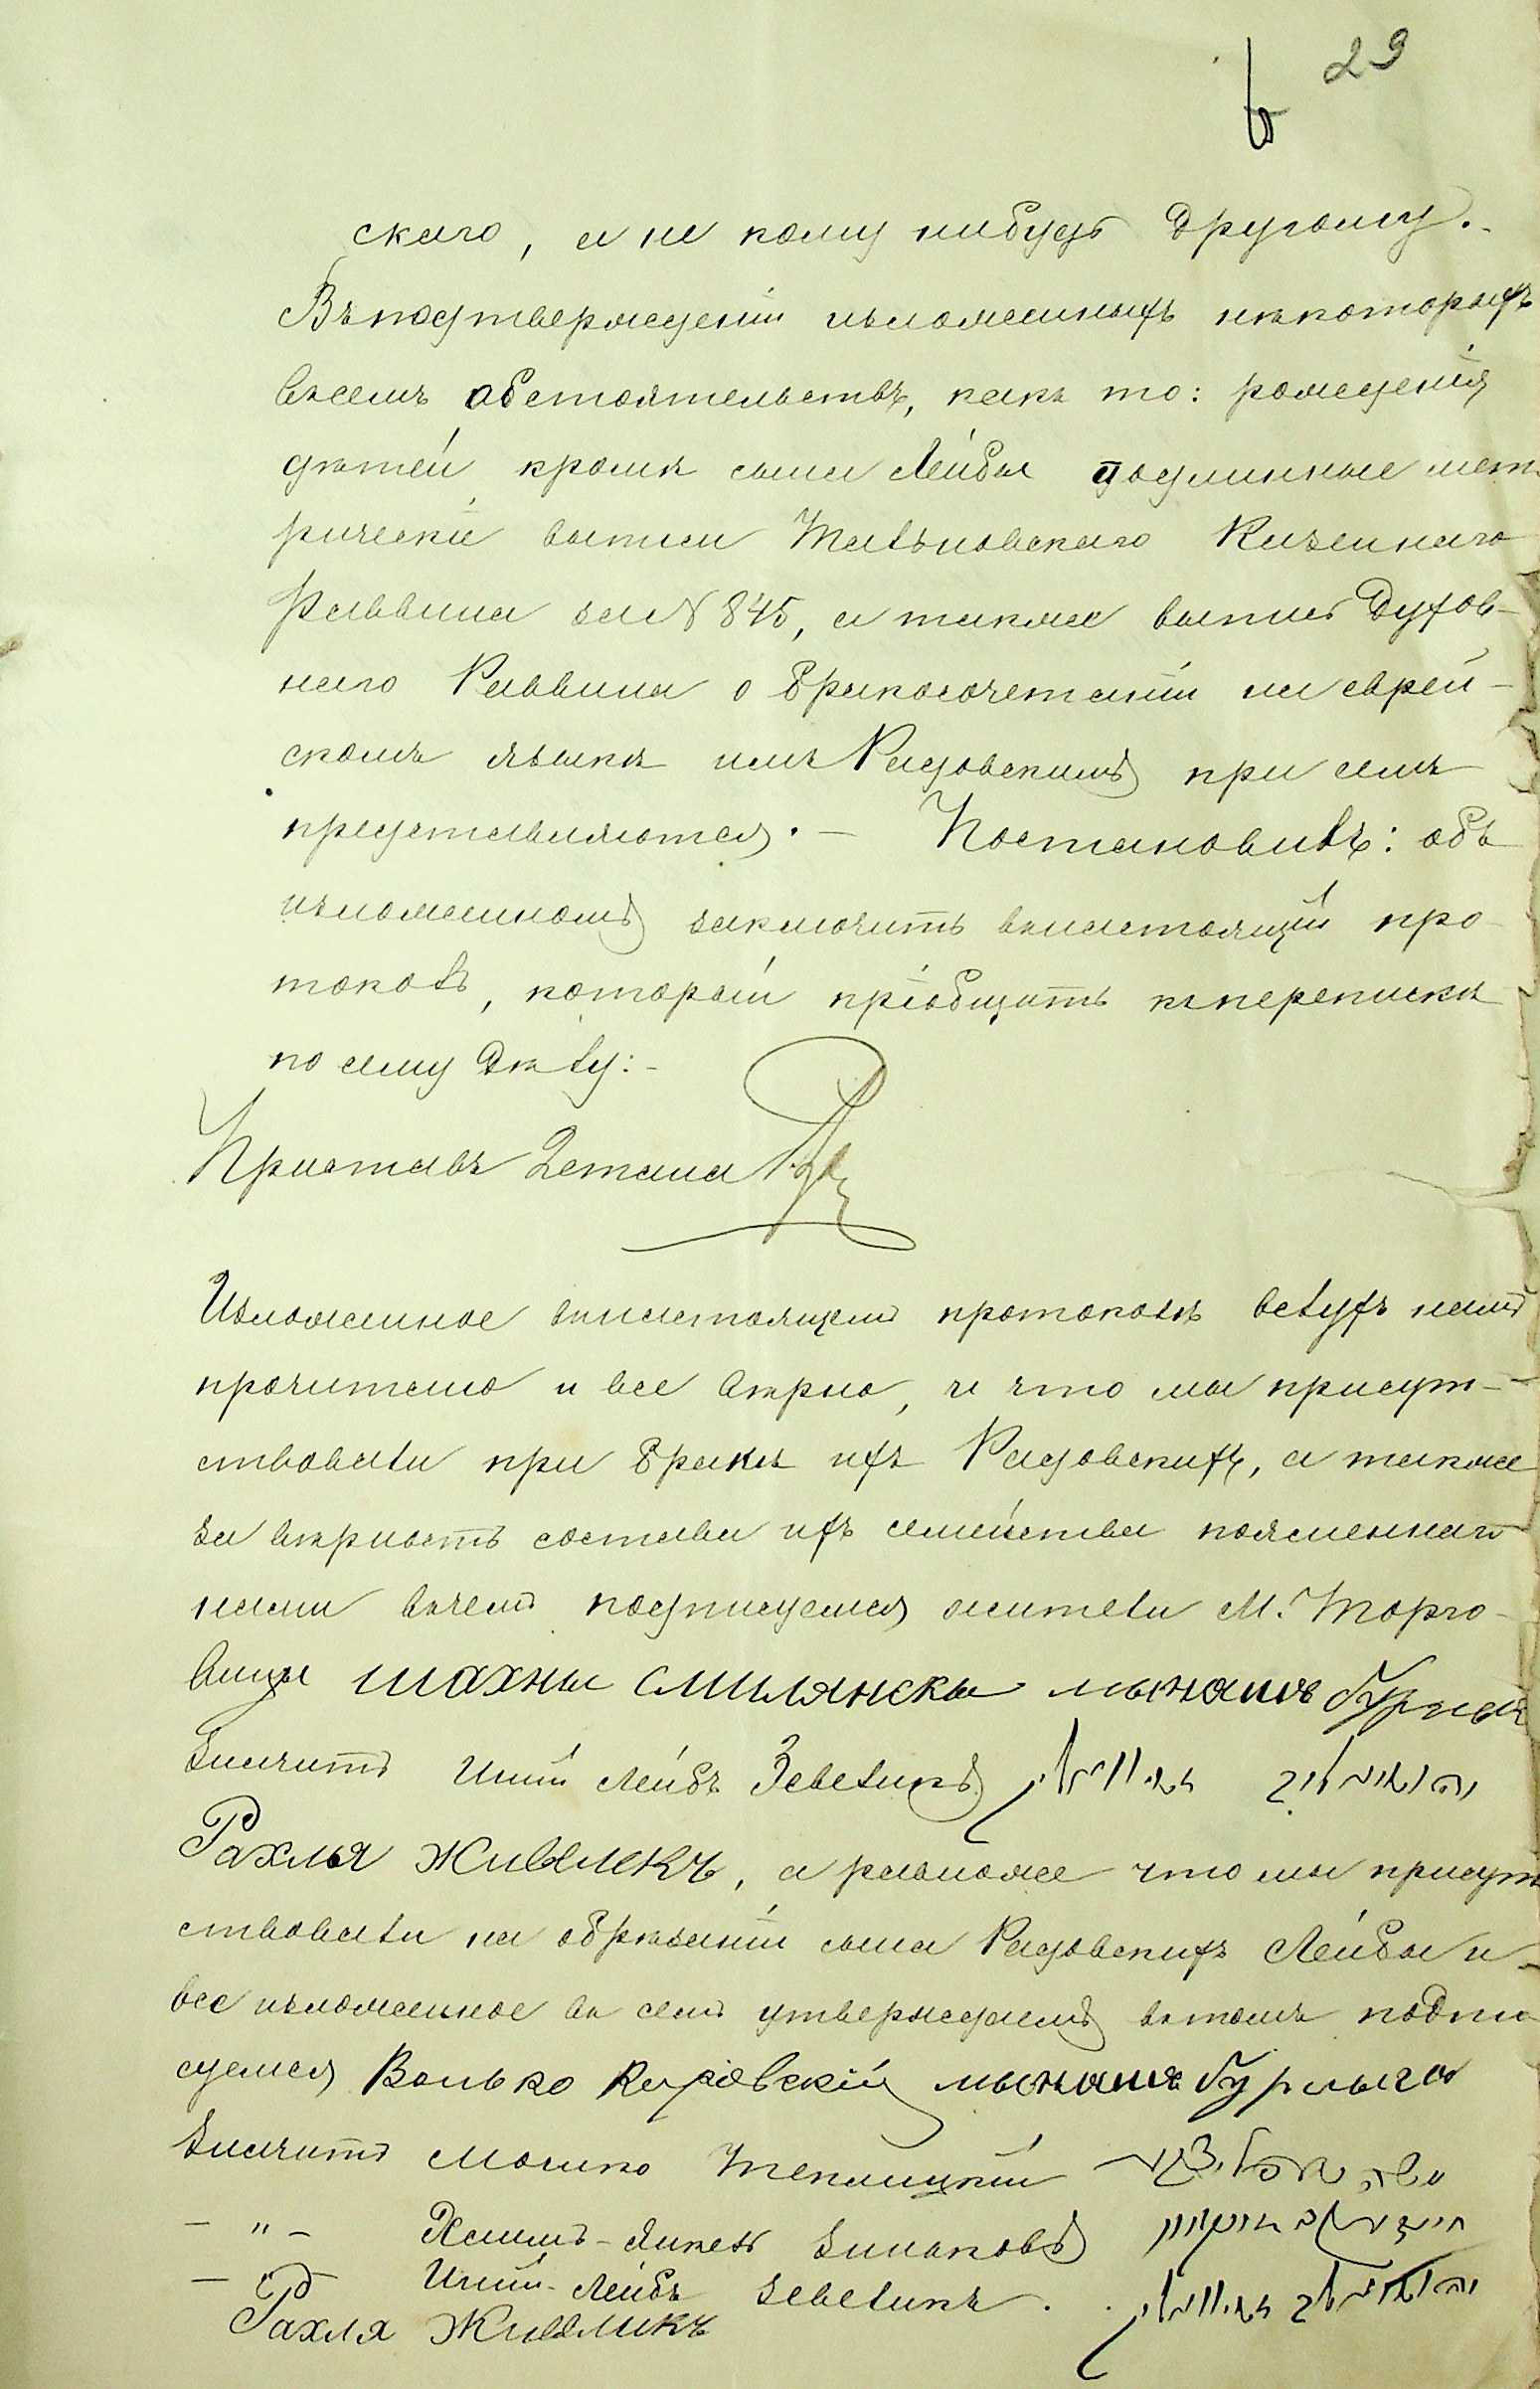 29
скаго, а не кому нибудь другому.-
Въ подтвержденіи изложенныхъ нѣкоторыхъ
въ семъ обстоятельствъ, какъ то: рожденія
дѣтей кромѣ сына Лейбы подлинные мет-
рическіе выписи Тальновскаго Казеннаго
Раввина за № 845, а также выпись Духов-
наго Раввина о бракосочетаніи на еврей-
скомъ языкѣ имъ Радовскимъ при семъ
представляются. — Постановилъ: объ
изложенномъ заключить въ настоящій про-
токолъ, который пріобщить къ перепискѣ
по сему дѣлу:-
Приставъ 2 стана
Изложенное въ настоящемъ протоколѣ вслухъ намъ
прочитано и все вѣрно, и что мы присут-
ствовали при бракѣ ихъ Радовскихъ, а также
за вѣрность состава ихъ семейства поясненнаго
нами въ чемъ подписуемся жители М. Торго-
вицы шахны смилянскы мынашъ
Значитъ Иций Лейбъ Зевеликъ
Рахля Живвликъ, а равноже что мы присут
ствовали на обрѣзаніи сына Радовскихъ Лейбы и
все изложенное въ семъ утверждаемъ въ томъ подпи
суемся Волько мынашъ Бурлыга
Значитъ Мошко Теплицкій
— " — Хаимъ-Янкель Зинаковъ
— " Иций-Лейбъ Зевеликъ.
Рахля Живвликъ